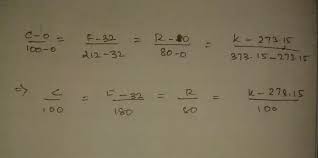 C-0/100-0 = F-32/212-32 = R-0/80-0 = K-273.15/373.15-273.15
⇒ C/100 = F-32/180 = R/80 = K-273.15/100